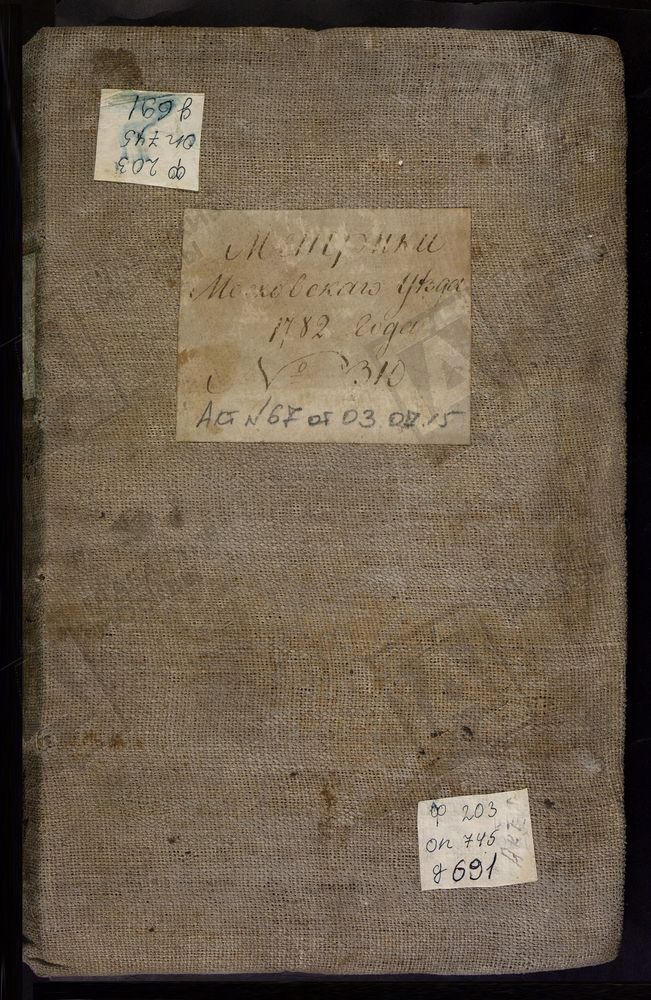 ф 203
оп 745
д 691
Метрики
Московскаго уѣзда
1782 года
№ 310
Акт №67 от 03.07.15
ф 203
оп 745
д 691